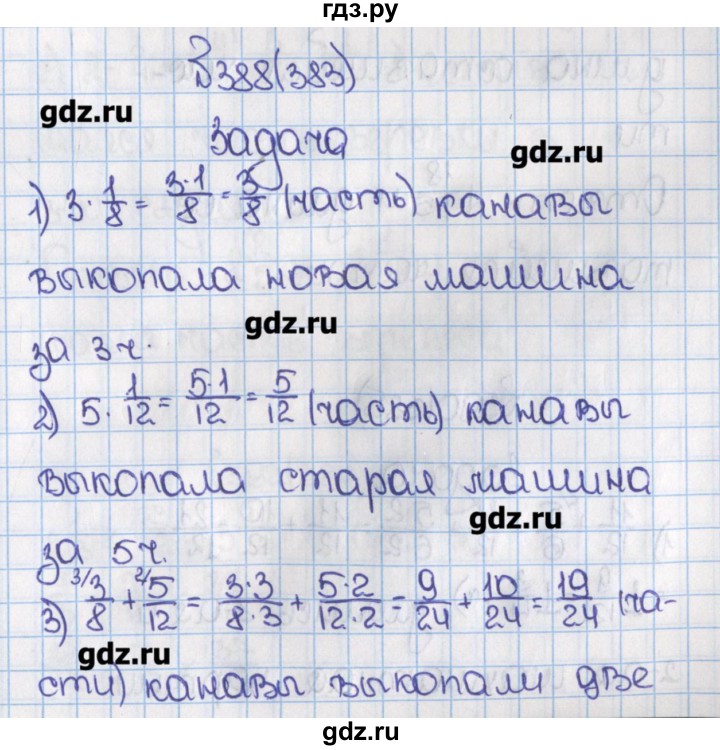 гдз.ру
№388(383)
gdz.ru
задача
gdz.ru
1) 3·1/8 = 3·1/8 = 3/8 (часть) канавы
выкопала новая машина
gdz.ru
за 3 ч.
2) 5·1/12 = 5·1/12 = 5/12 (часть) канавы
выкопала старая машина
gdz.ru
за 5 ч.
3) 3/8 + 5/12 = 3·3/8·3 + 5·2/12·2 = 9/24 + 10/24 = 19/24 (ча-
gdz.ru
сти) канавы выкопали две
gdz.ru